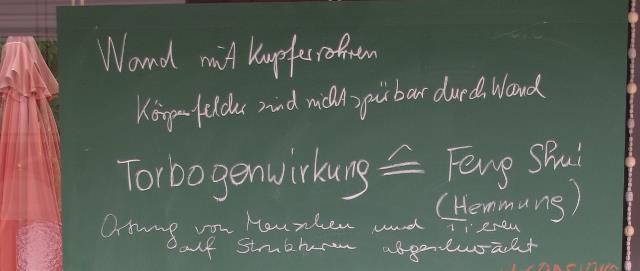 Wand mit Kupferrohren
Körperfelder sind nicht spürbar durch Wand
Torbogenwirkung ≙ Feng Shui
(Hemmung)
Ortung von Menschen und Tieren
auf Strukturen abgeschwächt